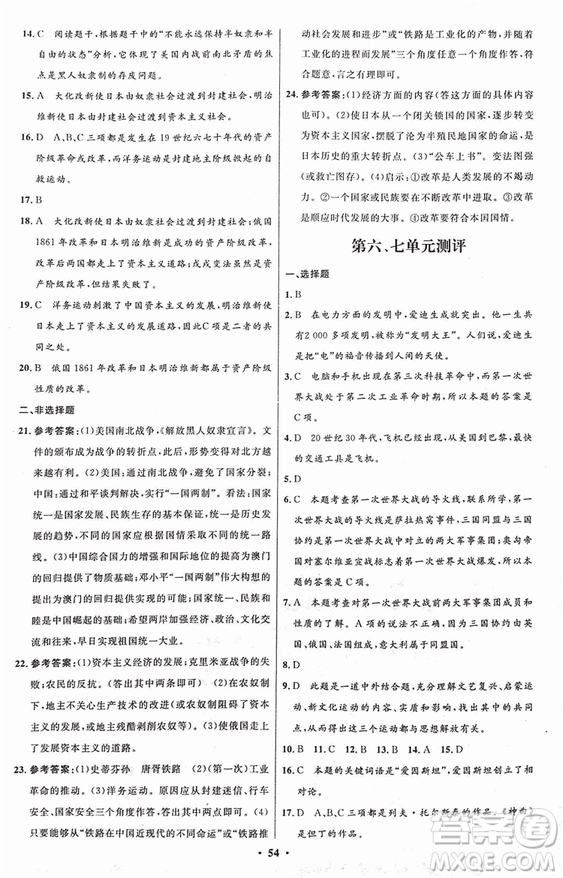 14. C　阅读题干，根据题干中的“不能永远保持半奴隶和半
自由的状态”分析，它体现了美国内战前南北矛盾的焦
点是黑人奴隶制的存废问题。
15. A　大化改新使日本由奴隶社会过渡到封建社会，明治
维新使日本由封建社会过渡到资本主义社会。
16. D　A、B、C三项都是发生在19世纪六七十年代的资产
阶级革命或改革，而洋务运动是封建地主阶级性质的
改革运动。
17. B
18. A　大化改新使日本由奴隶社会过渡到封建社会；俄国
1861年改革和日本明治维新是资产阶级改革，使国家
走上了发展资本主义道路；戊戌变法是资产阶级改革，
但结果失败。
19. C　洋务运动刺激了中国资本主义的发展，明治维新使
日本走上了资本主义的发展道路，因此C项是二者的共
同之处。
20. B　俄国1861年改革和日本明治维新都属于资产阶级
性质的改革。
二、非选择题
21. 参考答案：(1)美国南北战争，《解放黑人奴隶宣言》。文
件的颁布成为战争的转折点，此后，形势变得对北方越
来越有利。(2)美国：通过内战，避免了国家分裂；
中国：通过和平谈判制定了“一国两制”。看法：国家是
发展、民族生存的基本保证，统一成为历史发展的主流，
不同的国家应根据国情采取不同的方式实现统一。
(3)中国综合国力的不断增强为中国政府提出和平解决澳门
的回归提供了物质基础；邓小平“一国两制”的伟大构
想为澳门的回归提供了理论基础。(4)国家统一、民族和
睦是中国崛起的基础；希望两岸加强经济、政治、文化交流
和沟通，早日实现祖国统一大业。
22. 参考答案：(1)资本主义经济的发展；克里米亚战争的失
败；农民的反抗。(答出其中两点即可)(2)在农奴制
下，不可能推动生产技术的改进(或生产积极性不高)，
(或农奴主残酷剥削农奴等)。(3)使俄国走上了
发展资本主义的道路。
23. 参考答案：(1)史蒂芬孙　唐胥铁路　(第一次)工业
革命的推动。(2)洋务运动。原因应从清政府的腐败、
列强的侵略等方面回答，言之有理即可。(3)略。
只要能够从“铁路在中国近现代的不同命运”“铁路推
动社会和进步”或“铁路是工业化的产物，同时又推动
工业化的进程发展”三个角度任意一个角度作答。符
合题意，言之有理即可。
24. 参考答案：(1)经济方面的内容(符合这方面的内容即
可)。(2)使日本从一个闭关锁国的国家，逐步转变
为资本主义国家，摆脱了沦为半殖民地国家的命运，是
日本历史的重大转折点。(3)《公车上书》。变法图强
(或救亡图存)。(4)启示：①改革是人类发展的不竭动
力。②一个国家或民族要在不断改革中发展。③改革
是顺应时代发展的大事。④改革要符合本国国情。
第六、七单元测评
一、选择题
1. B
2. B　在电力方面的发明中，爱迪生成就突出。他一生共有
2 000多项发明，被称为“发明大王”。人们说，爱迪生
是把“电”的福音传播到人间的天使。
3. C　电脑和手机出现在第三次科技革命中，而第一次世界
大战处于第二次工业革命时期，因此本题的答案是
C项。
4. D　20世纪30年代，飞机已经出现。从美国到巴黎，最快
的交通工具是飞机。
5. B
6. C　本题考查第一次世界大战的导火线，联系所学，第一
次世界大战的导火线是萨拉热窝事件，三国同盟与三国
协约矛盾日益尖锐，萨拉热窝事件成为导火线，奥匈帝
国对塞尔维亚宣战标志着第一次世界大战爆发，所以本
题的答案是C项。
7. A　本题考查第一次世界大战前两大军事集团成员和
性质。A项的说法不正确，第一次大战前两大军事集团
中，英国、俄国、法国组成，意大利属于同盟国。
8. D
9. D　此题是一道中外结合题，充分理解文艺复兴、启蒙运
动、新文化运动的内容及意义，找出共同点是思想解放
运动，从而得出这三个运动都与思想解放有关。
10. B　11. C　12. B　13. C　14. A　15. D
16. C　本题的关键词语是“爱因斯坦”，爱因斯坦创立了相
对论。
17. D　A、B、C三项都是列夫·托尔斯泰的作品。《神曲》
是但丁的作品。
54
答案圈
MXQE.COM